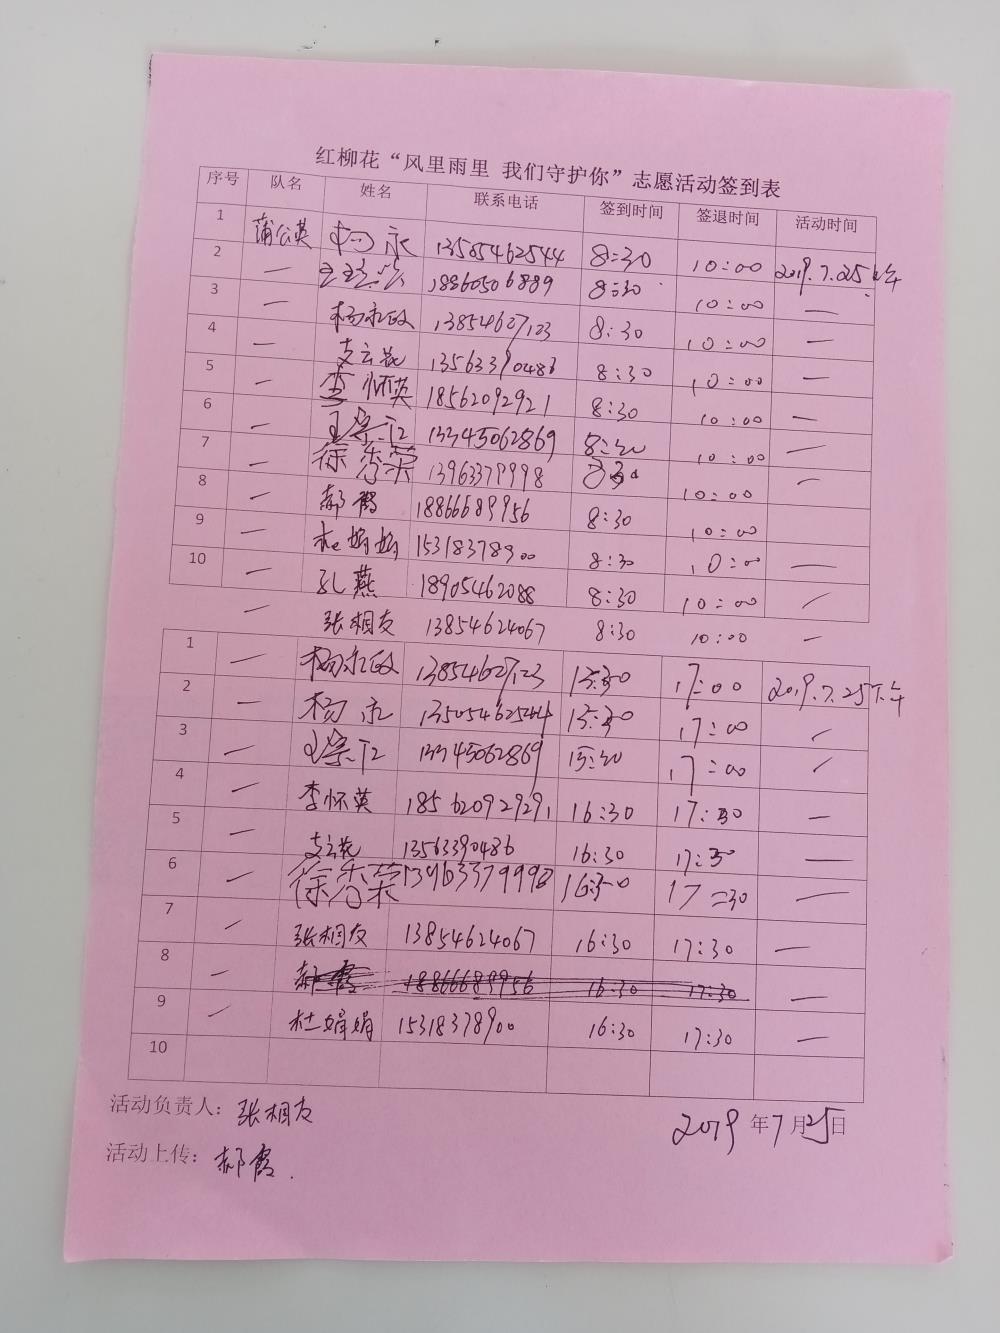 红柳花“风里雨里 我们守护你”志愿活动签到表
序号 队名 姓名 联系电话 签到时间 签退时间 活动时间
1 蒲公英 杨永 13505462544 8:30 10:00 2019.7.25上午
2 — 18860506889 8:30 10:00 —
3 — 杨永政 13854627123 8:30 10:00 —
4 — 支云花 13563390486 8:30 10:00 —
5 — 李怀英 18562092921 8:30 10:00 —
6 — 13345062869 8:30 10:00 —
7 — 徐秀荣 13963379998 8:30 10:00 —
8 — 郝霞 18866689956 8:30 10:00
9 — 杜娟娟 15318378900 8:30 10:00 —
10 — 孔燕 18905462088 8:30 10:00 —
— 张相友 13854624067 8:30 10:00 —
1 — 杨永政 13854627123 15:30 17:00 2019.7.25下午
2 — 杨永 13505462544 15:30 17:00 —
3 — 13345062869 15:30 17:00 —
4 — 李怀英 18562092921 16:30 17:30 —
5 — 支云花 13563390486 16:30 17:30 —
6 — 徐秀荣 13963379998 16:30 17:30 —
7 — 张相友 13854624067 16:30 17:30 —
8 — 郝霞 18866689956 16:30 17:30 —
9 — 杜娟娟 15318378900 16:30 17:30 —
10
活动负责人：张相友 2019年7月25日
活动上传：郝霞.